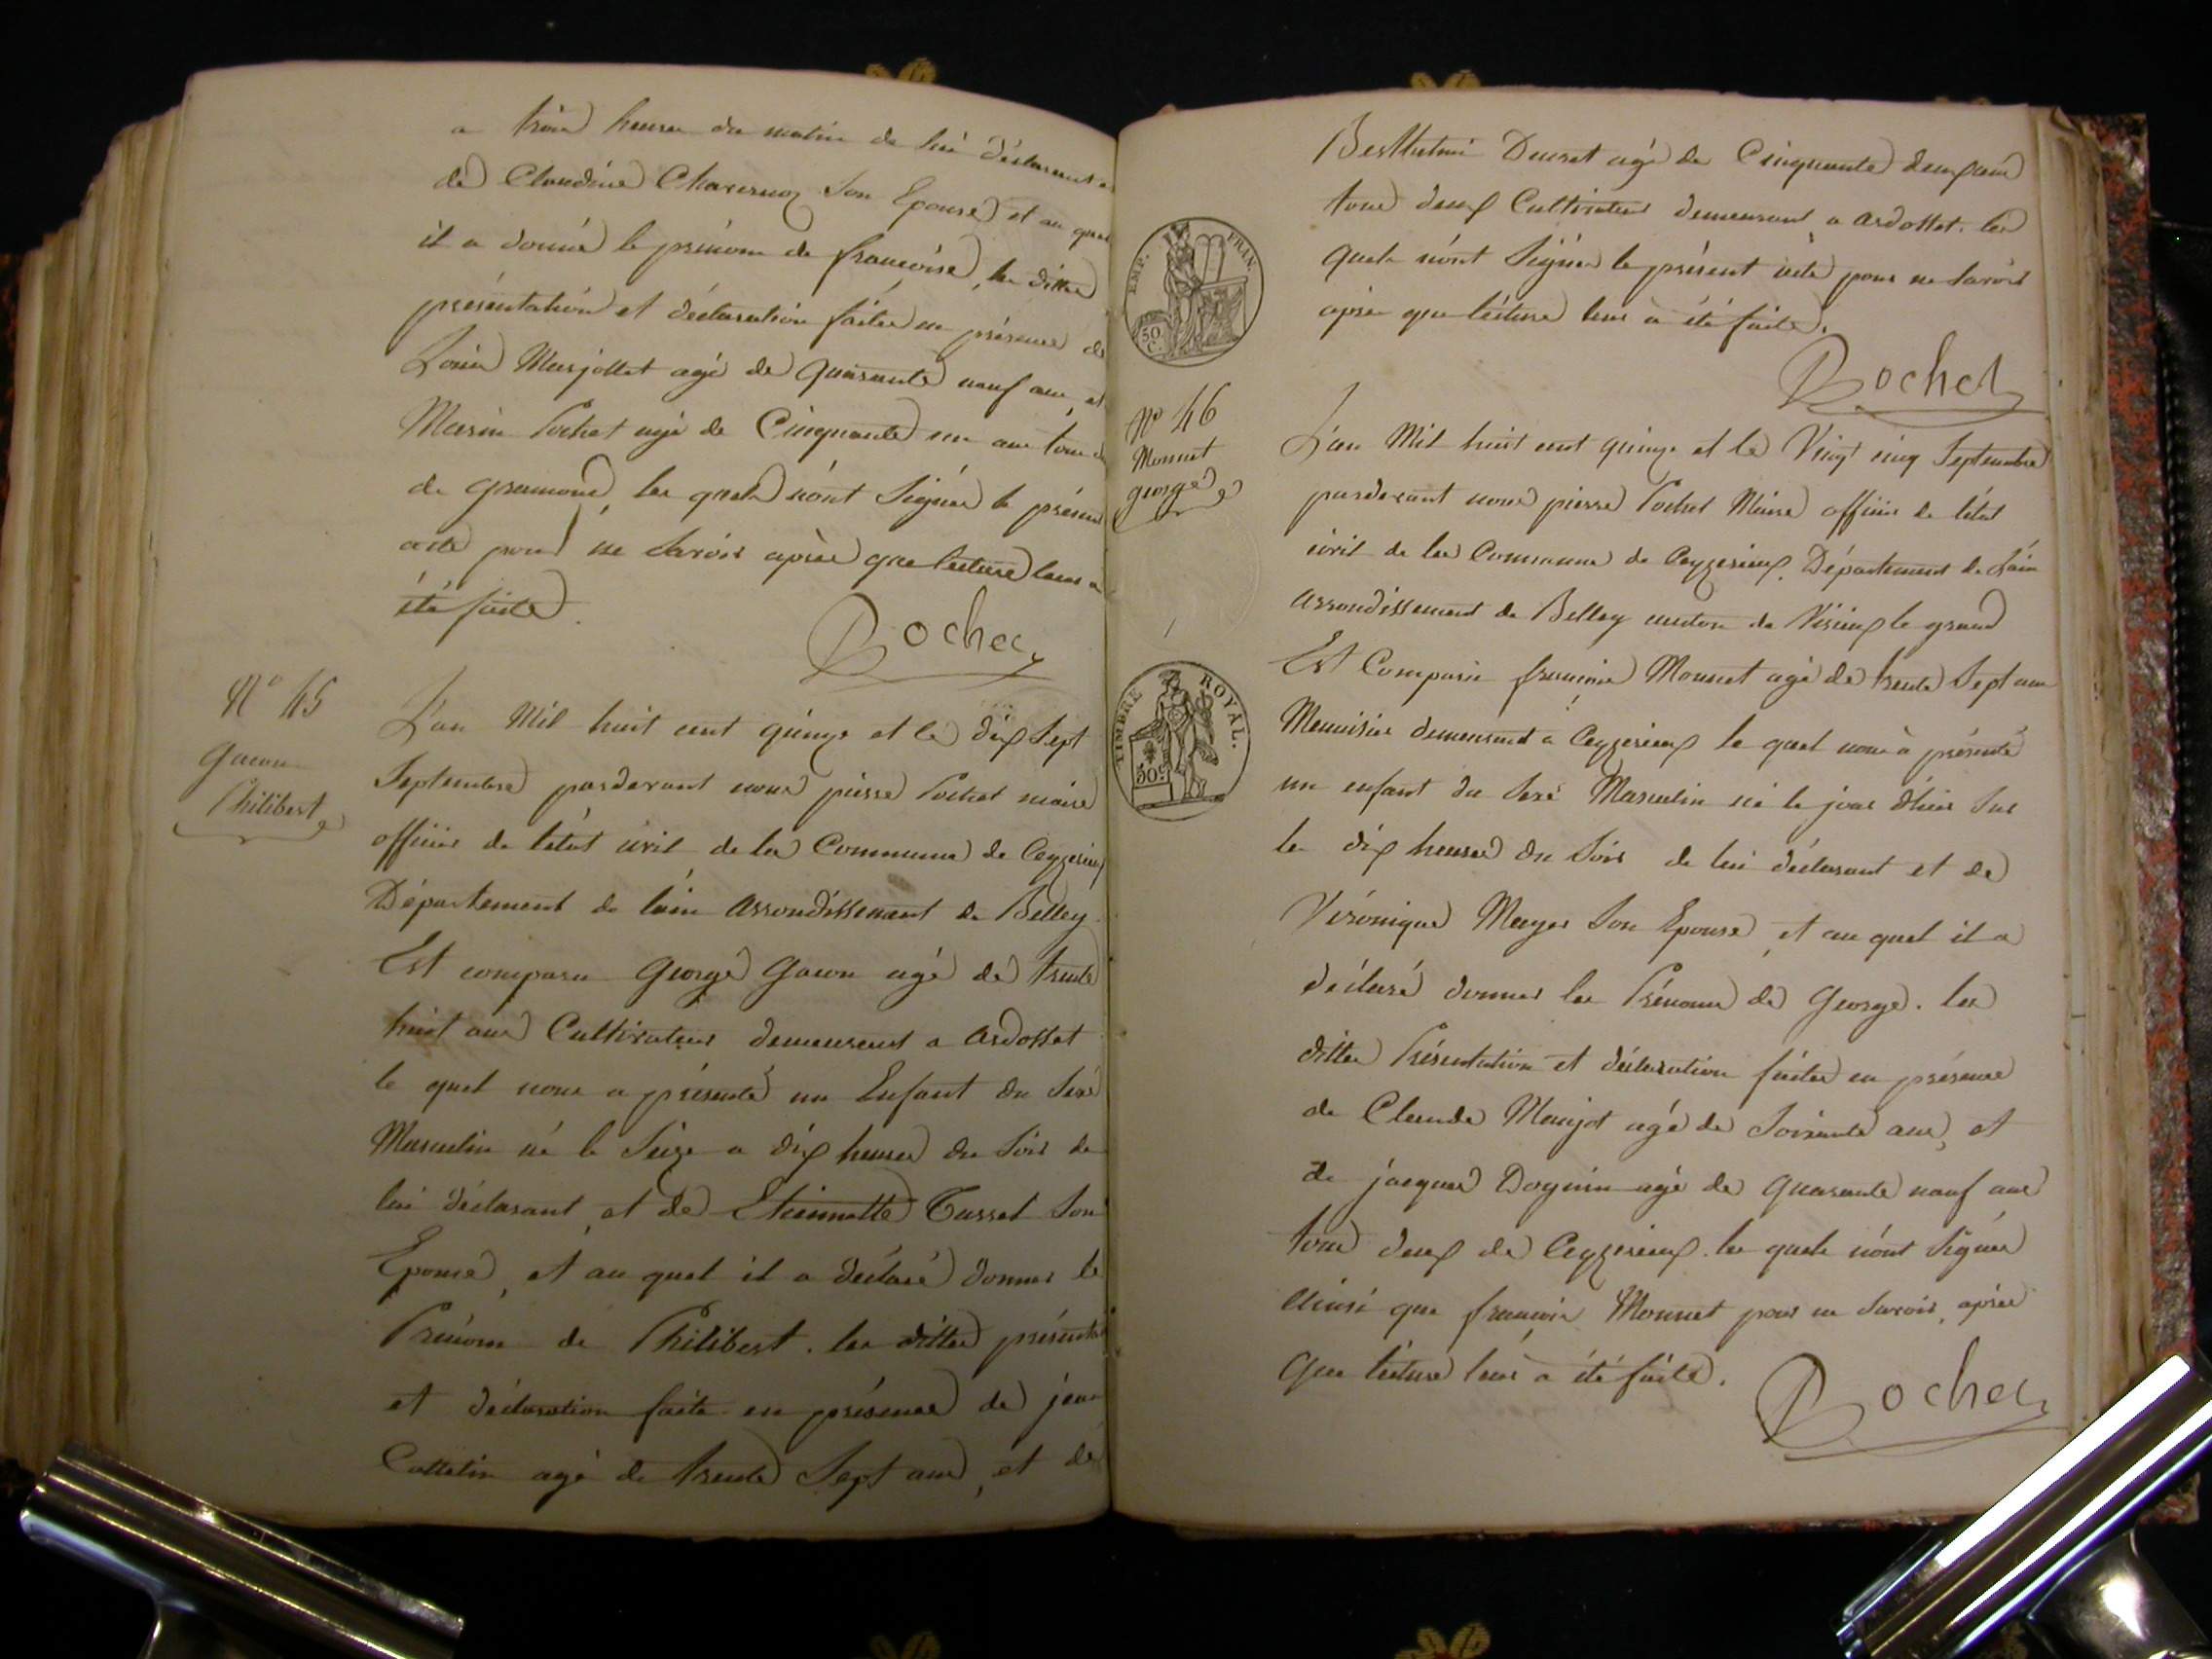 a trois heures du matin de lui déclarant et
de Claudine Charesnoz Son Epouse et au quel
il a donné le prénom de françoise, les dittes
présentation et déclaration faites en présence de
Louis Marjollet agé de quarante neuf ans, et
Marin Pochet agé de Cinquante un ans tous
de gramond, les quels n'ont Signés le présent
acte pour ne Savoir après que lecture leur a
été faite.
Pochet
N° 45
gacon
Philibert
L'an Mil huit cent quinze et le dix Sept
Septembre pardevant nous pierre Pochet maire
officier de l'état civil de la Commune de Ceyzerieux
Département de l'ain arrondissement de Belley
Est comparu George gacon agé de trente
huit ans Cultivateur demeurant a ardosset
le quel nous a présenté un Enfant du Sexe
Masculin né le Seize a dix heures du Soir de
lui déclarant, et de Etiennette Cusset Son
Epouse, et au quel il a déclaré donner le
Prénom de Philibert. les dittes présentat
et déclaration faite en présence de jean
Cattelin agé de trente Sept ans, et de
Berthelmi Ducret agé de Cinquante deux ans
tous deux Cultivateurs demeurant a ardosset. les
quels n'ont Signés le présent acte pour ne Savoir
après que lecture leur a été faite.
Pochet
EMP. FRAN.
50 C.
N° 46
Monnet
george
TIMBRE ROYAL.
50 c
L'an Mil huit cent quinze et le Vingt cinq Septembre
pardevant nous pierre Pochet Maire officier de l'état
civil de la Commune de Ceyzerieux Département de l'ain
arrondissement de Belley canton de Virieux le grand
Est Comparu françois Monnet agé de trente Sept ans
Menuisier demeurant a Ceyzerieux le quel nous a présenté
un enfant du Sexe Masculin né le jour d'hier Sur
les dix heures du Soir de lui déclarant et de
Véronique Son Epouse, et au quel il a
déclaré donner les Prénoms de George. les
dittes Présentation et déclaration faites en présence
de Claude agé de Soixante ans, et
de jacques agé de quarante neuf ans
tous deux de Ceyzerieux. les quels n'ont Signés
ainsi que françois Monnet pour ne Savoir, après
que lecture leur a été faite.
Pochet